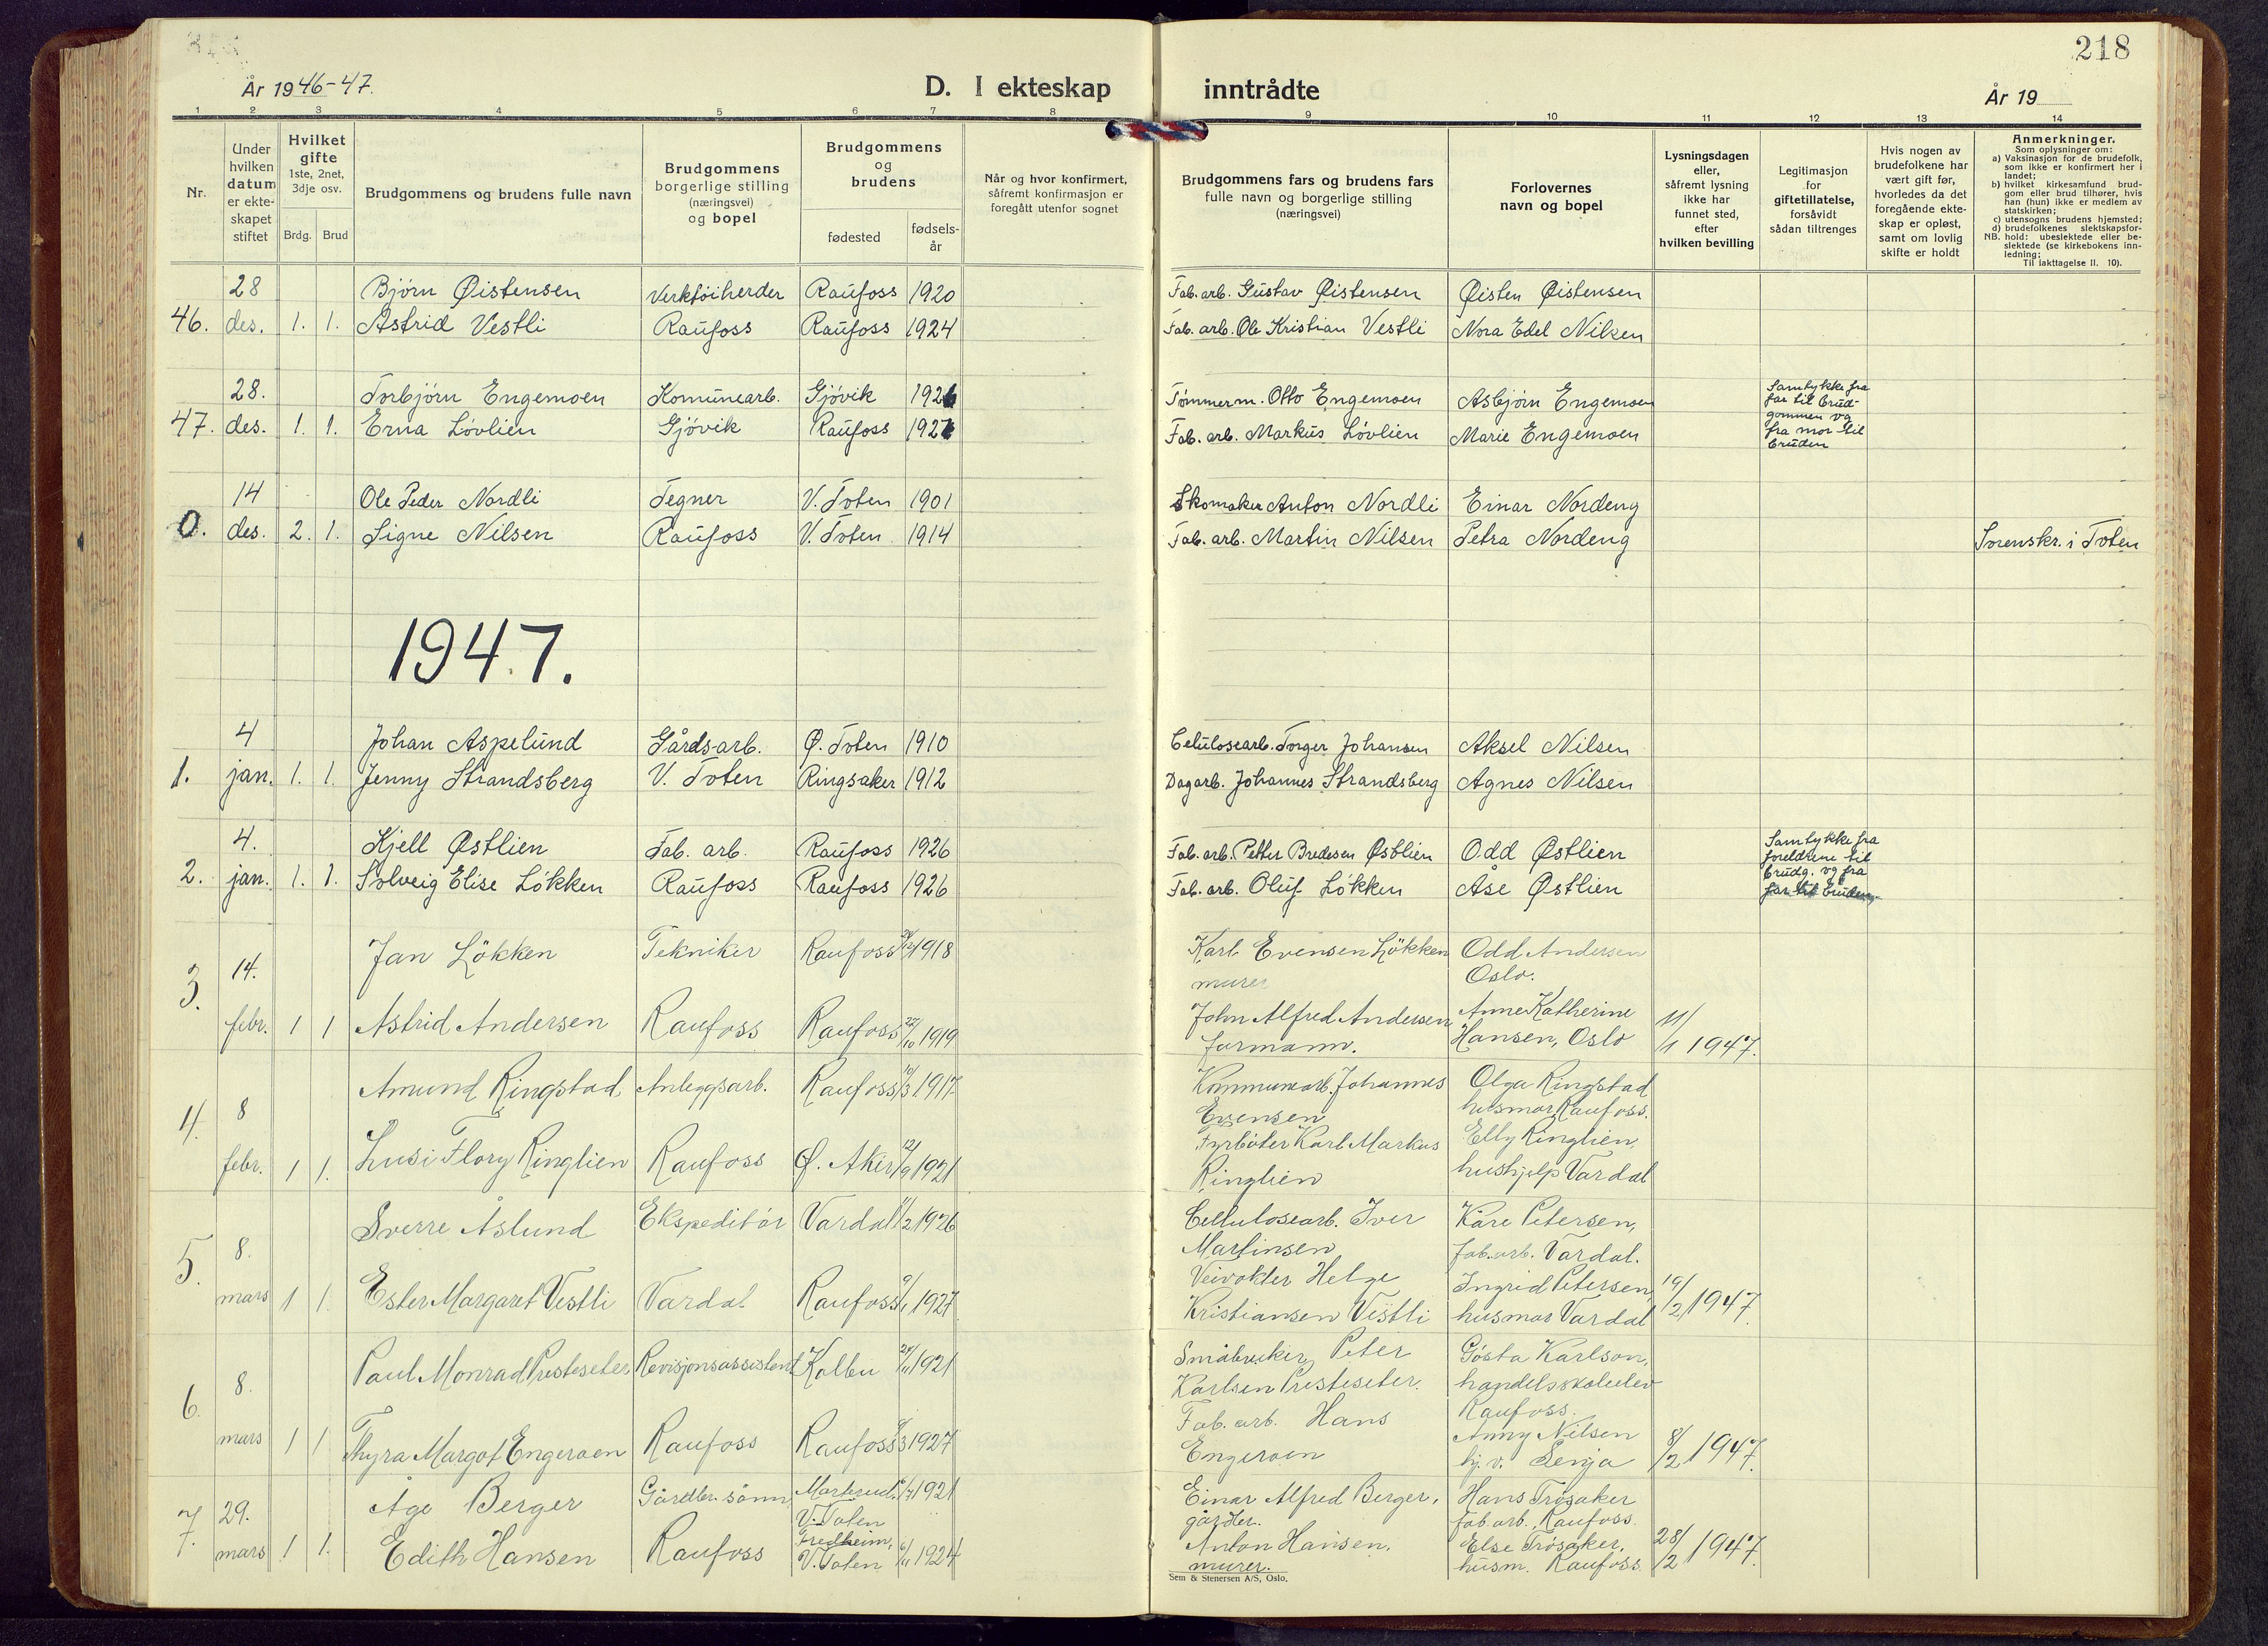 218
År 1946-47.
D. I ekteskap inntrådte
År 19
1 2 3 4 5 6 7 8 9 10 11 12 13 14
Nr.
Under hvilken datum er ekte-skapet stiftet
Hvilket gifte 1ste, 2net, 3dje osv.
Brdg. Brud
Brudgommens og brudens fulle navn
Brudgommens borgerlige stilling (næringsvei) og bopel
Brudgommens og brudens
fødested
fødsels-år
Når og hvor konfirmert, såfremt konfirmasjon er foregått utenfor sognet
Brudgommens fars og brudens fars fulle navn og borgerlige stilling (næringsvei)
Forlovernes navn og bopel
Lysningsdagen eller, såfremt lysning ikke har funnet sted, efter hvilken bevilling
Legitimasjon for giftetillatelse, forsåvidt sådan tiltrenges
Hvis nogen av brudefolkene har vært gift før, hvorledes da det foregående ekte-skap er opløst, samt om lovlig skifte er holdt
Anmerkninger.
Som oplysninger om:
a) Vaksinasjon for de brudefolk, som ikke er konfirmert her i landet;
b) hvilket kirkesamfund brud-gom eller brud tilhører, hvis han (hun) ikke er medlem av statskirken;
c) utensogns brudens hjemsted;
d) brudefolkenes slektskapsfor-hold: ubeslektede eller be-slektede (se kirkebokens inn-ledning;
NB.
Til iakttagelse II. 10).
28 Bjørn Øistensen Verktøiherder Raufoss 1920 Fab. arb. Gustav Øistensen Øisten Øistensen
46. des. 1. 1. Astrid Vestli Raufoss Raufoss 1924 Fab. arb. Ole Kristian Vestli Nora Edel Nilsen
28. Torbjørn Engemoen Komunearb. Gjøvik 1926 Tømmerm. Otto Engemoen Asbjørn Engemoen Samtykke fra far til brud-gommen og
47. des. 1. 1. Erna Løvlien Gjøvik Raufoss 1927 Fab. arb. Markus Løvlien Marie Engemoen fra mor til bruden
14 Ole Peder Nordli Tegner V. Toten 1901 Skomaker Anton Nordli Einar Nordeng
0. des. 2. 1. Signe Nilsen Raufoss V. Toten 1914 Fab. arb. Martin Nilsen Petra Nordeng Sorenskr. i Toten
1947.
4 Johan Aspelund Gårdsarb. Ø. Toten 1910 Celulosearb. Torger Johansen Aksel Nilsen
1. jan. 1. 1. Jenny Strandsberg V. Toten Ringsaker 1912 Dagarb. Johannes Strandsberg Agnes Nilsen
4. Kjell Østlien Fab. arb. Raufoss 1926 Fab. arb. Petter Bredesen Østlien Odd Østlien Samtykke fra foreldrene til
2. jan. 1. 1. Solveig Elise Løkken Raufoss Raufoss 1926 Fab. arb. Oluf Løkken Åse Østlien brudg. og fra far til bruden
14. Jan Løkken Tekniker Raufoss 1918 Karl Evensen Løkken murer Odd Andersen Oslo.
3. febr. 1 1 Astrid Andersen Raufoss Raufoss 27/10 1919 John Alfred Andersen formann. Anne Katherine Hansen, Oslo 11/1 1947.
8 Amund Ringstad Anleggsarb. Raufoss 1917 Kommunearb. Johannes Evensen Olga Ringstad husmor Raufoss.
4. febr. 1 1. Lusi Flory Ringlien Raufoss Ø. Aker 12/9 1921 Fyrbøter Karl Markus Ringlien Elly Ringlien, hushjelp Vardal
8. Sverre Åslund Ekspeditør Vardal 1926 Cellulosearb. Iver Martinsen Kåre Petersen, fab. arb. Vardal.
5. mars 1 1. Ester Margaret Vestli Vardal Raufoss 1927 Veivokter Helge Kristiansen Vestli Ingrid Petersen, husmor Vardal 19/2 1947.
8. Paul Monrad Presteseter Revisjonsassistent Kolbu 1921 Småbruker Peter Karlsen Presteseter. Gösta Karlson, handelsskoleelev Raufoss.
6. mars 1 1 Thyra Margot Engeroen Raufoss Raufoss 1927 Fab. arb. Hans Engeroen Anny Nilsen hj. v. Senja 8/2 1947.
29. Åge Berger Gårdbr. sønn V. Toten 1921 Einar Alfred Berger, gårdbr. Hans Trøsaker fab. arb., Raufoss.
7. mars 1 1. Edith Hansen Raufoss Fredheim, V. Toten 1924 Anton Hansen, murer. Else Trøsaker, husm. Raufoss. 28/2 1947.
Sem & Stenersen A/S, Oslo.